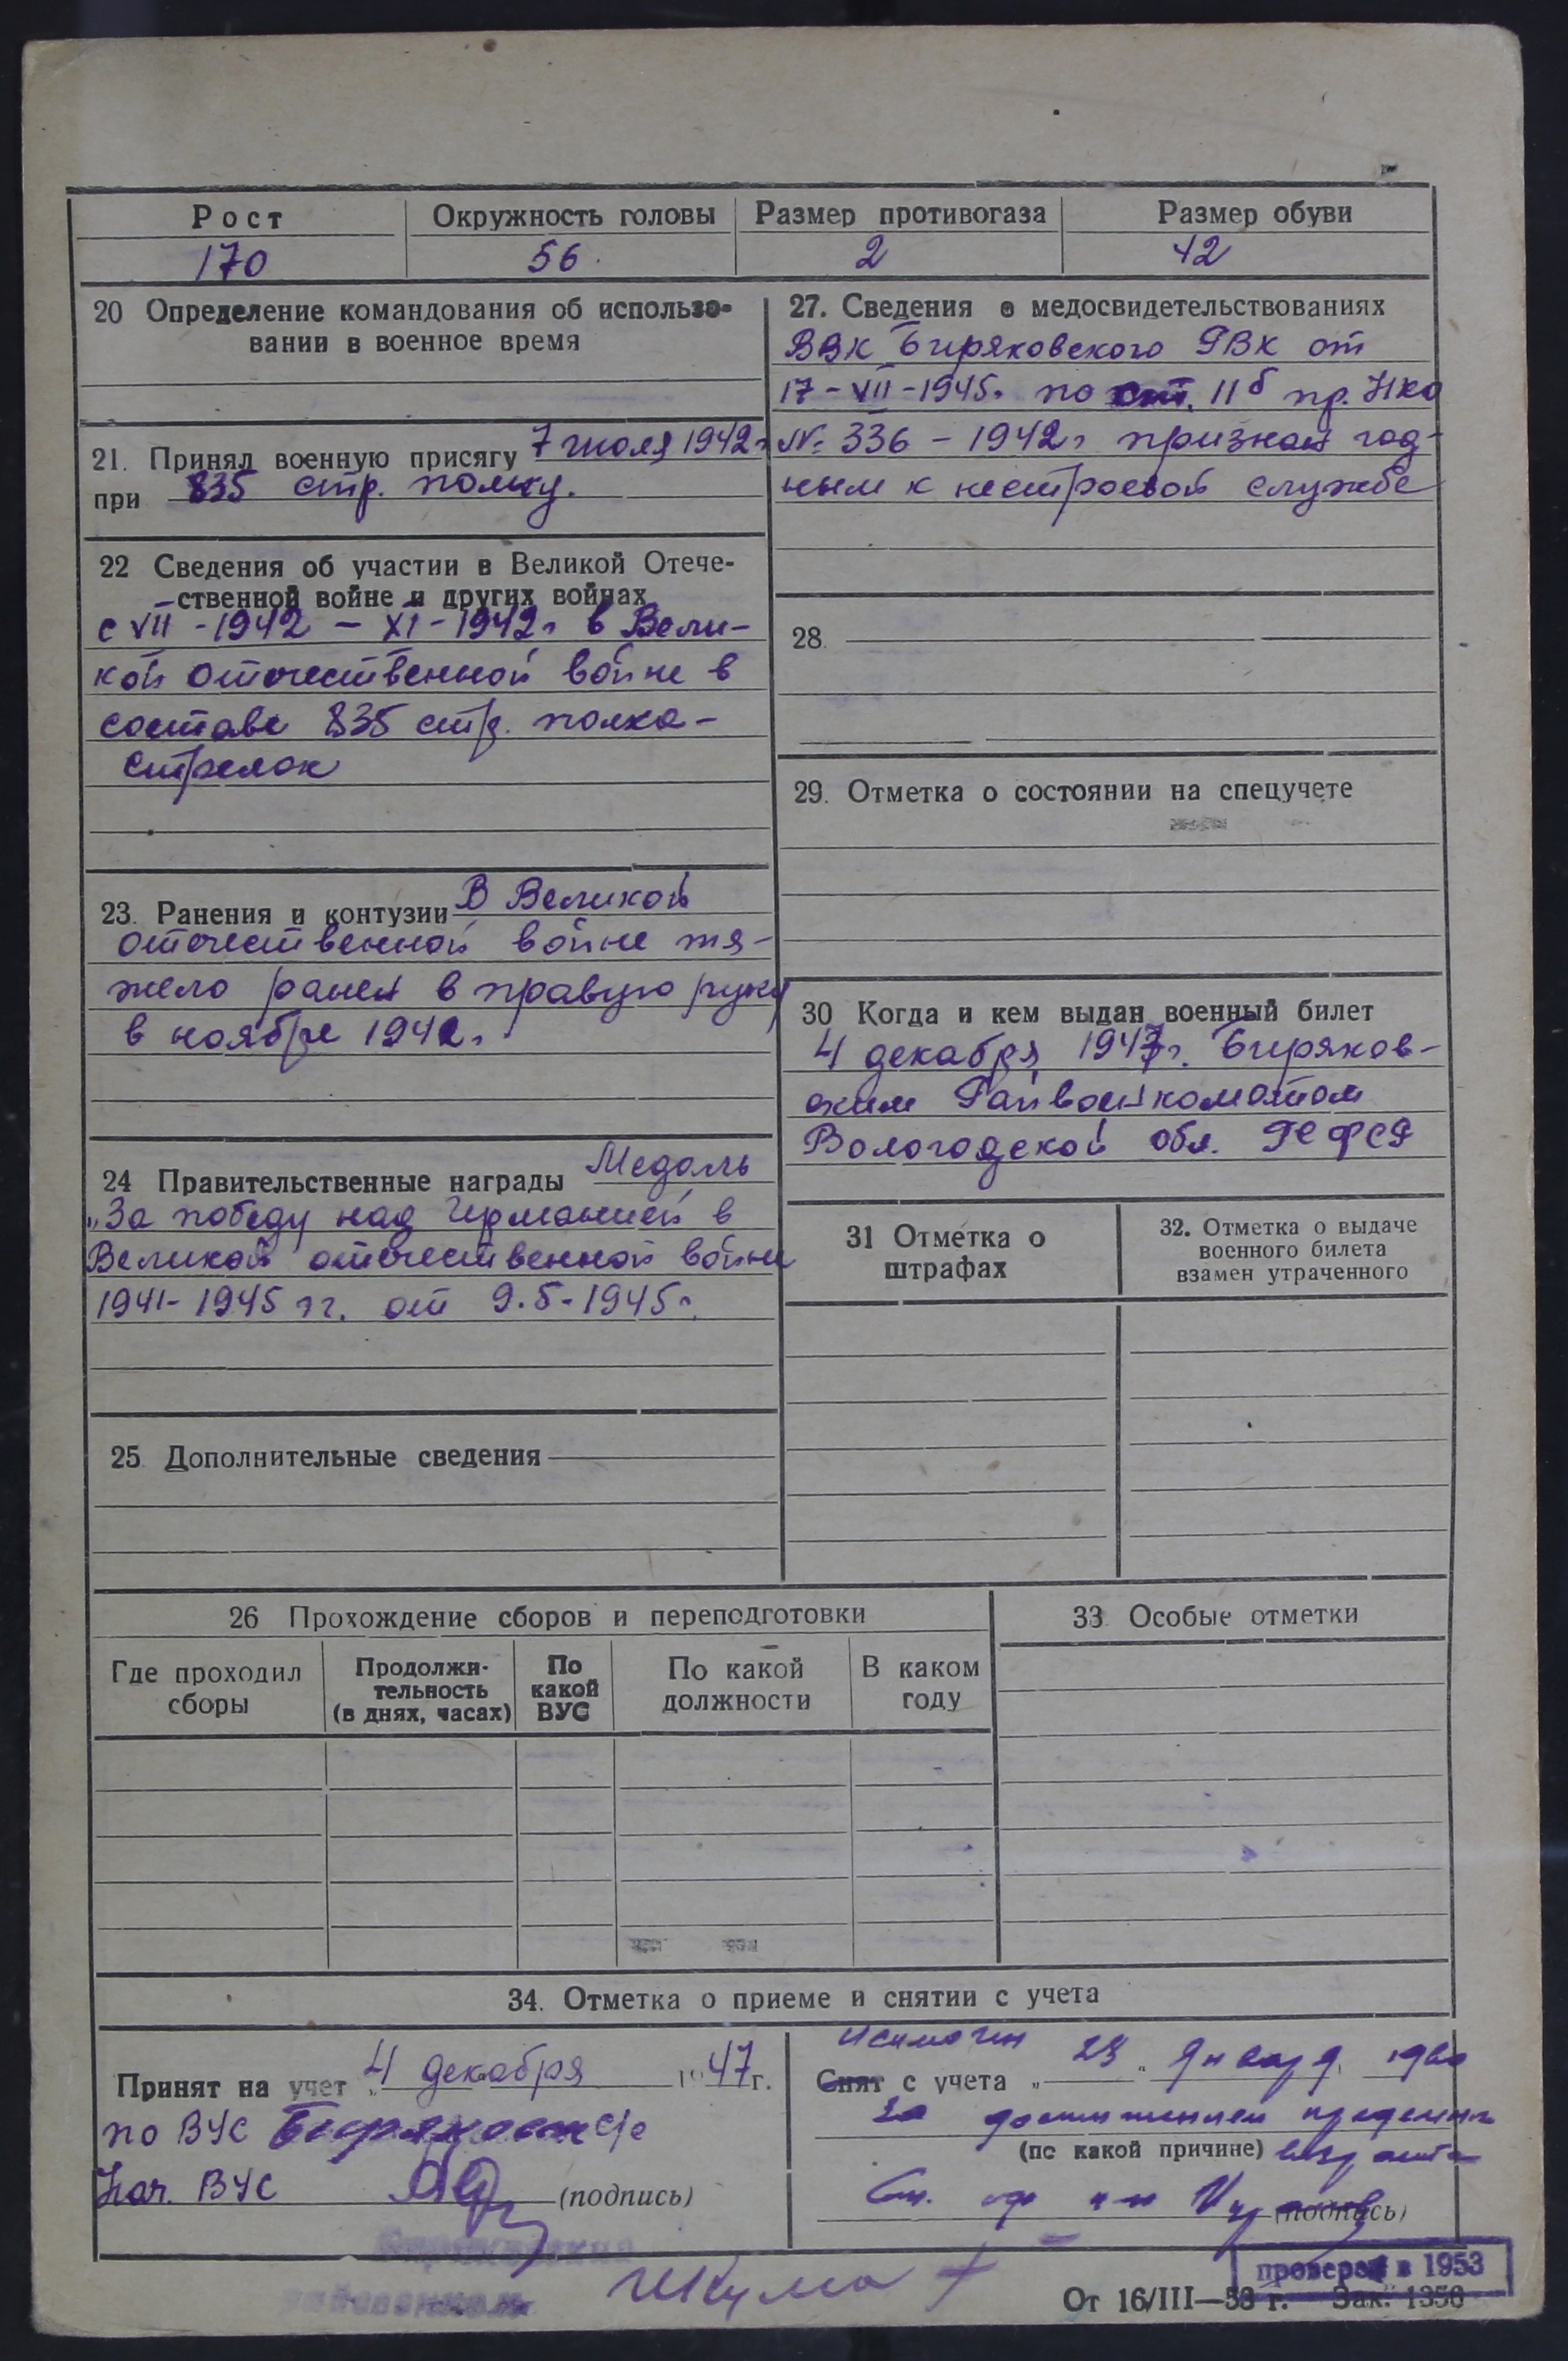 Рост Окружность головы Размер противогаза Размер обуви
170 56. 2 42
20 Определение командования об использо-
вании в военное время
21. Принял военную присягу 7 июля 1942г
при 835 стр. полку.
22 Сведения об участии в Великой Отече-
ственной войне и других войнах
с VII-1942 – XI-1942г в Вели-
кой отечественной войне в
составе 835 стр. полка –
стрелок
23. Ранения и контузии В Великой
отечественной войне тя-
жело ранен в правую руку
в ноябре 1942г.
24 Правительственные награды Медаль
„За победу над Германией в
Великой отечественной войне
1941-1945 гг. от 9.5-1945г.
25 Дополнительные сведения
27. Сведения о медосвидетельствованиях
ВВК Биряковского РВК от
17-VII-1945г. по ст. 11б пр. НКО
№ 336 – 1942г признан год-
ным к нестроевой службе
28.
29. Отметка о состоянии на спецучете
30 Когда и кем выдан военный билет
4 декабря 1947г. Биряков-
ским Райвоенкоматом
Вологодской обл. РСФСР
31 Отметка о
штрафах
32. Отметка о выдаче
военного билета
взамен утраченного
26 Прохождение сборов и переподготовки
Где проходил
сборы
Продолжи-
тельность
(в днях, часах)
По
какой
ВУС
По какой
должности
В каком
году
33. Особые отметки
34. Отметка о приеме и снятии с учета
Принят на учет „4 декабря 1947г.
по ВУС
Нач. ВУС (подпись)
Исключен
Снят с учета „ 23 " Января 1960
За достижением предельн
(по какой причине) возраста
(подпись)
проверен в 1953
От 16/III—53 г. Зак. 1356